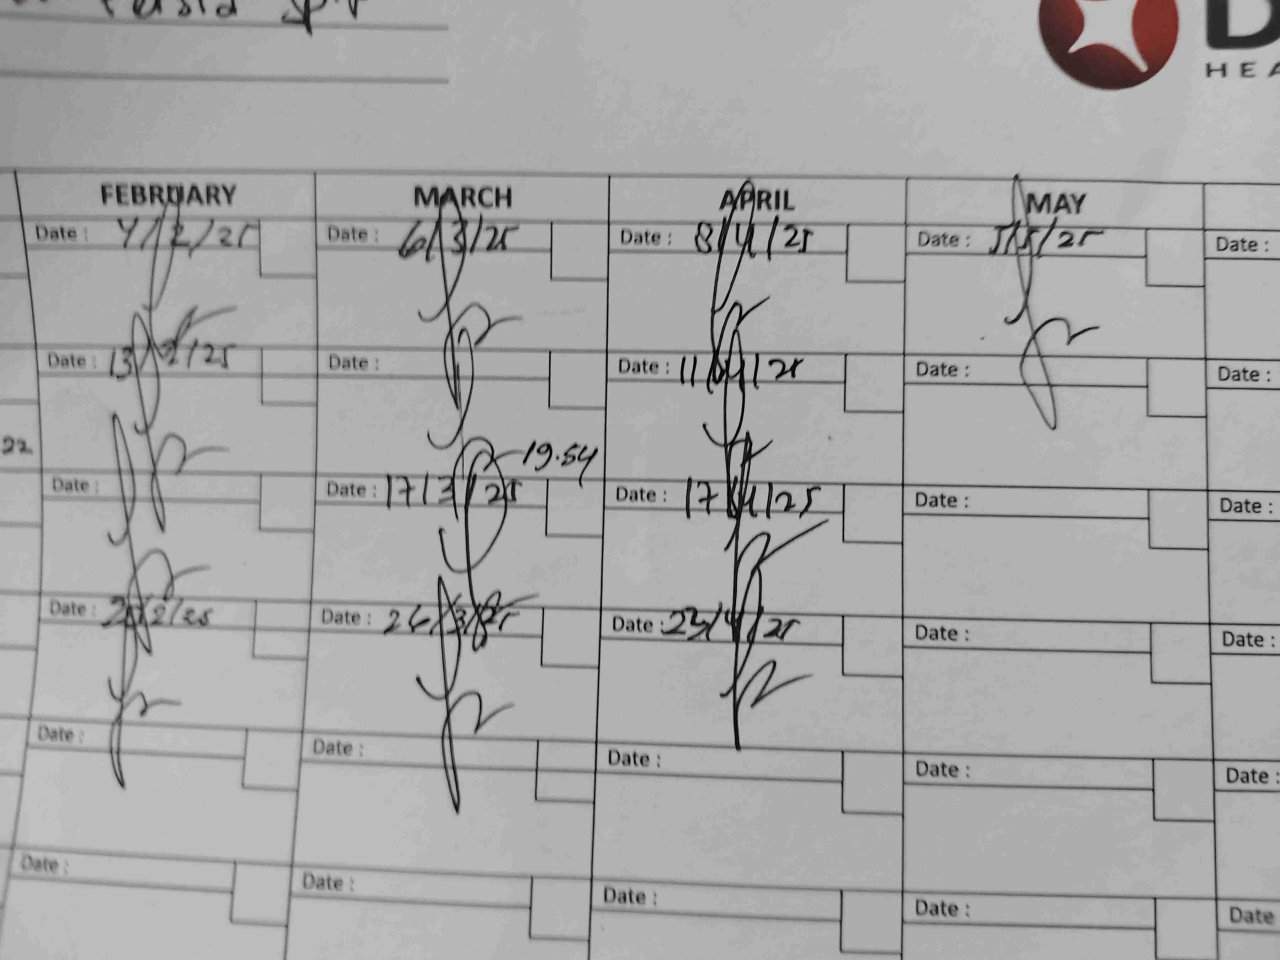 HEA
FEBRUARY MARCH APRIL MAY
Date : 4/2/25 Date : 6/3/25 Date : 8/4/25 Date : 5/5/25 Date :
Date : 13/2/25 Date : Date : 11/04/25 Date : Date :
22 19.54
Date : Date : 17/3/25 Date : 17/4/25 Date : Date :
Date : /2/25 Date : 26/3/25 Date : 23/4/25 Date : Date :
Date : Date : Date : Date : Date :
Date : Date : Date : Date : Date